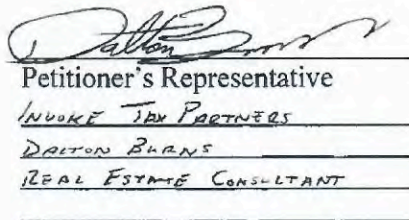 Dalton Burns
Petitioner's Representative
INVOKE TAX PARTNERS
DALTON BURNS
REAL ESTATE CONSULTANT